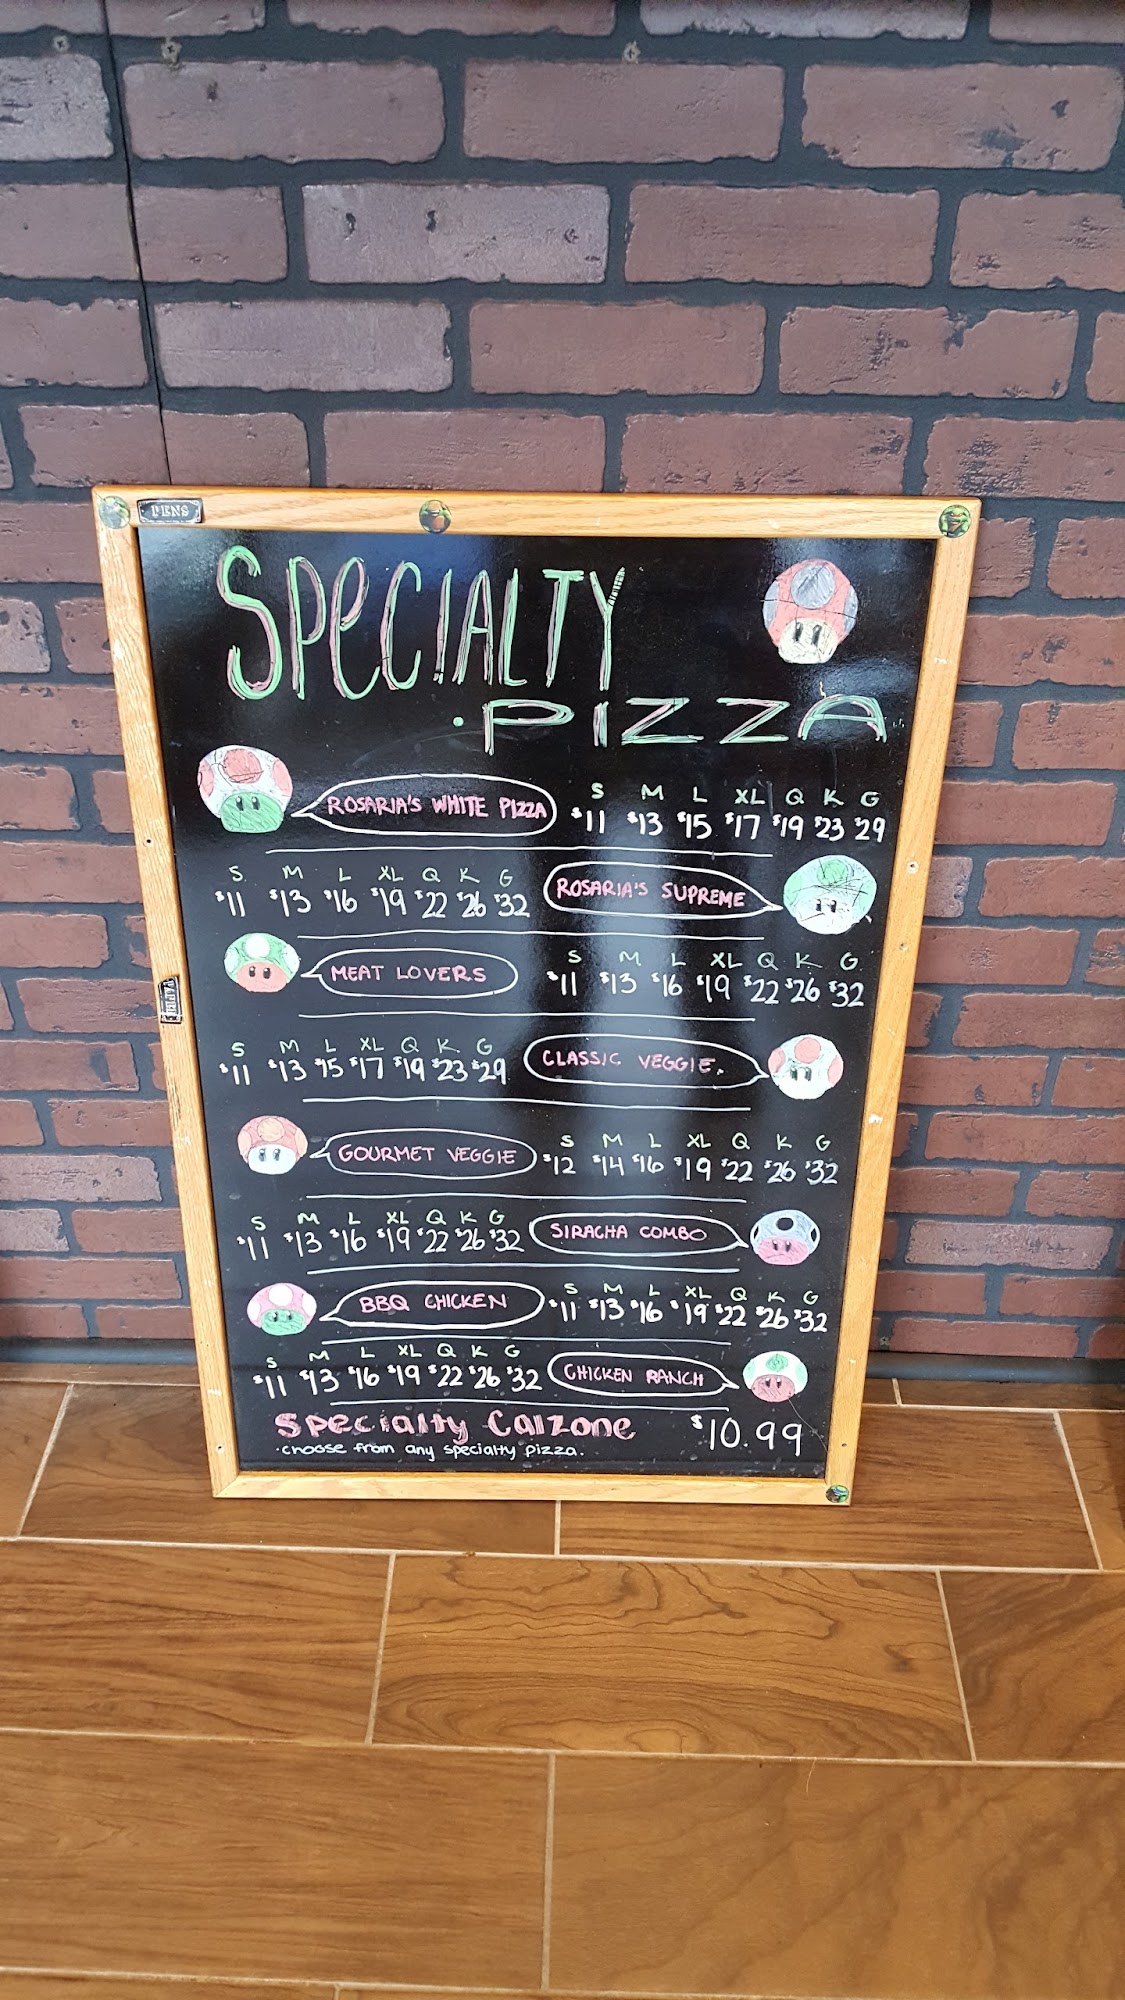 PENS
SPeCIALTY
PIZZA
S M L XL Q K G
ROSARIA'S WHITE PIZZA $11 $13 $15 $17 $19 $23 $29
S M L XL Q K G
$11 $13 $16 $19 $22 $26 $32 ROSARIA'S SUPREME
S M L XL Q K G
MEAT LOVERS $11 $13 $16 $19 $22 $26 $32
S M L XL Q K G
$11 $13 $15 $17 $19 $23 $29 CLASSIC VEGGIE.
S M L XL Q K G
GOURMET VEGGIE $12 $14 $16 $19 $22 $26 $32
S M L XL Q K G
$11 $13 $16 $19 $22 $26 $32 SIRACHA COMBO
S M L XL Q K G
BBQ CHICKEN $11 $13 $16 $19 $22 $26 $32
S M L XL Q K G
$11 $13 $16 $19 $22 $26 $32 CHICKEN RANCH
Specialty Calzone $10.99
·choose from any specialty pizza.